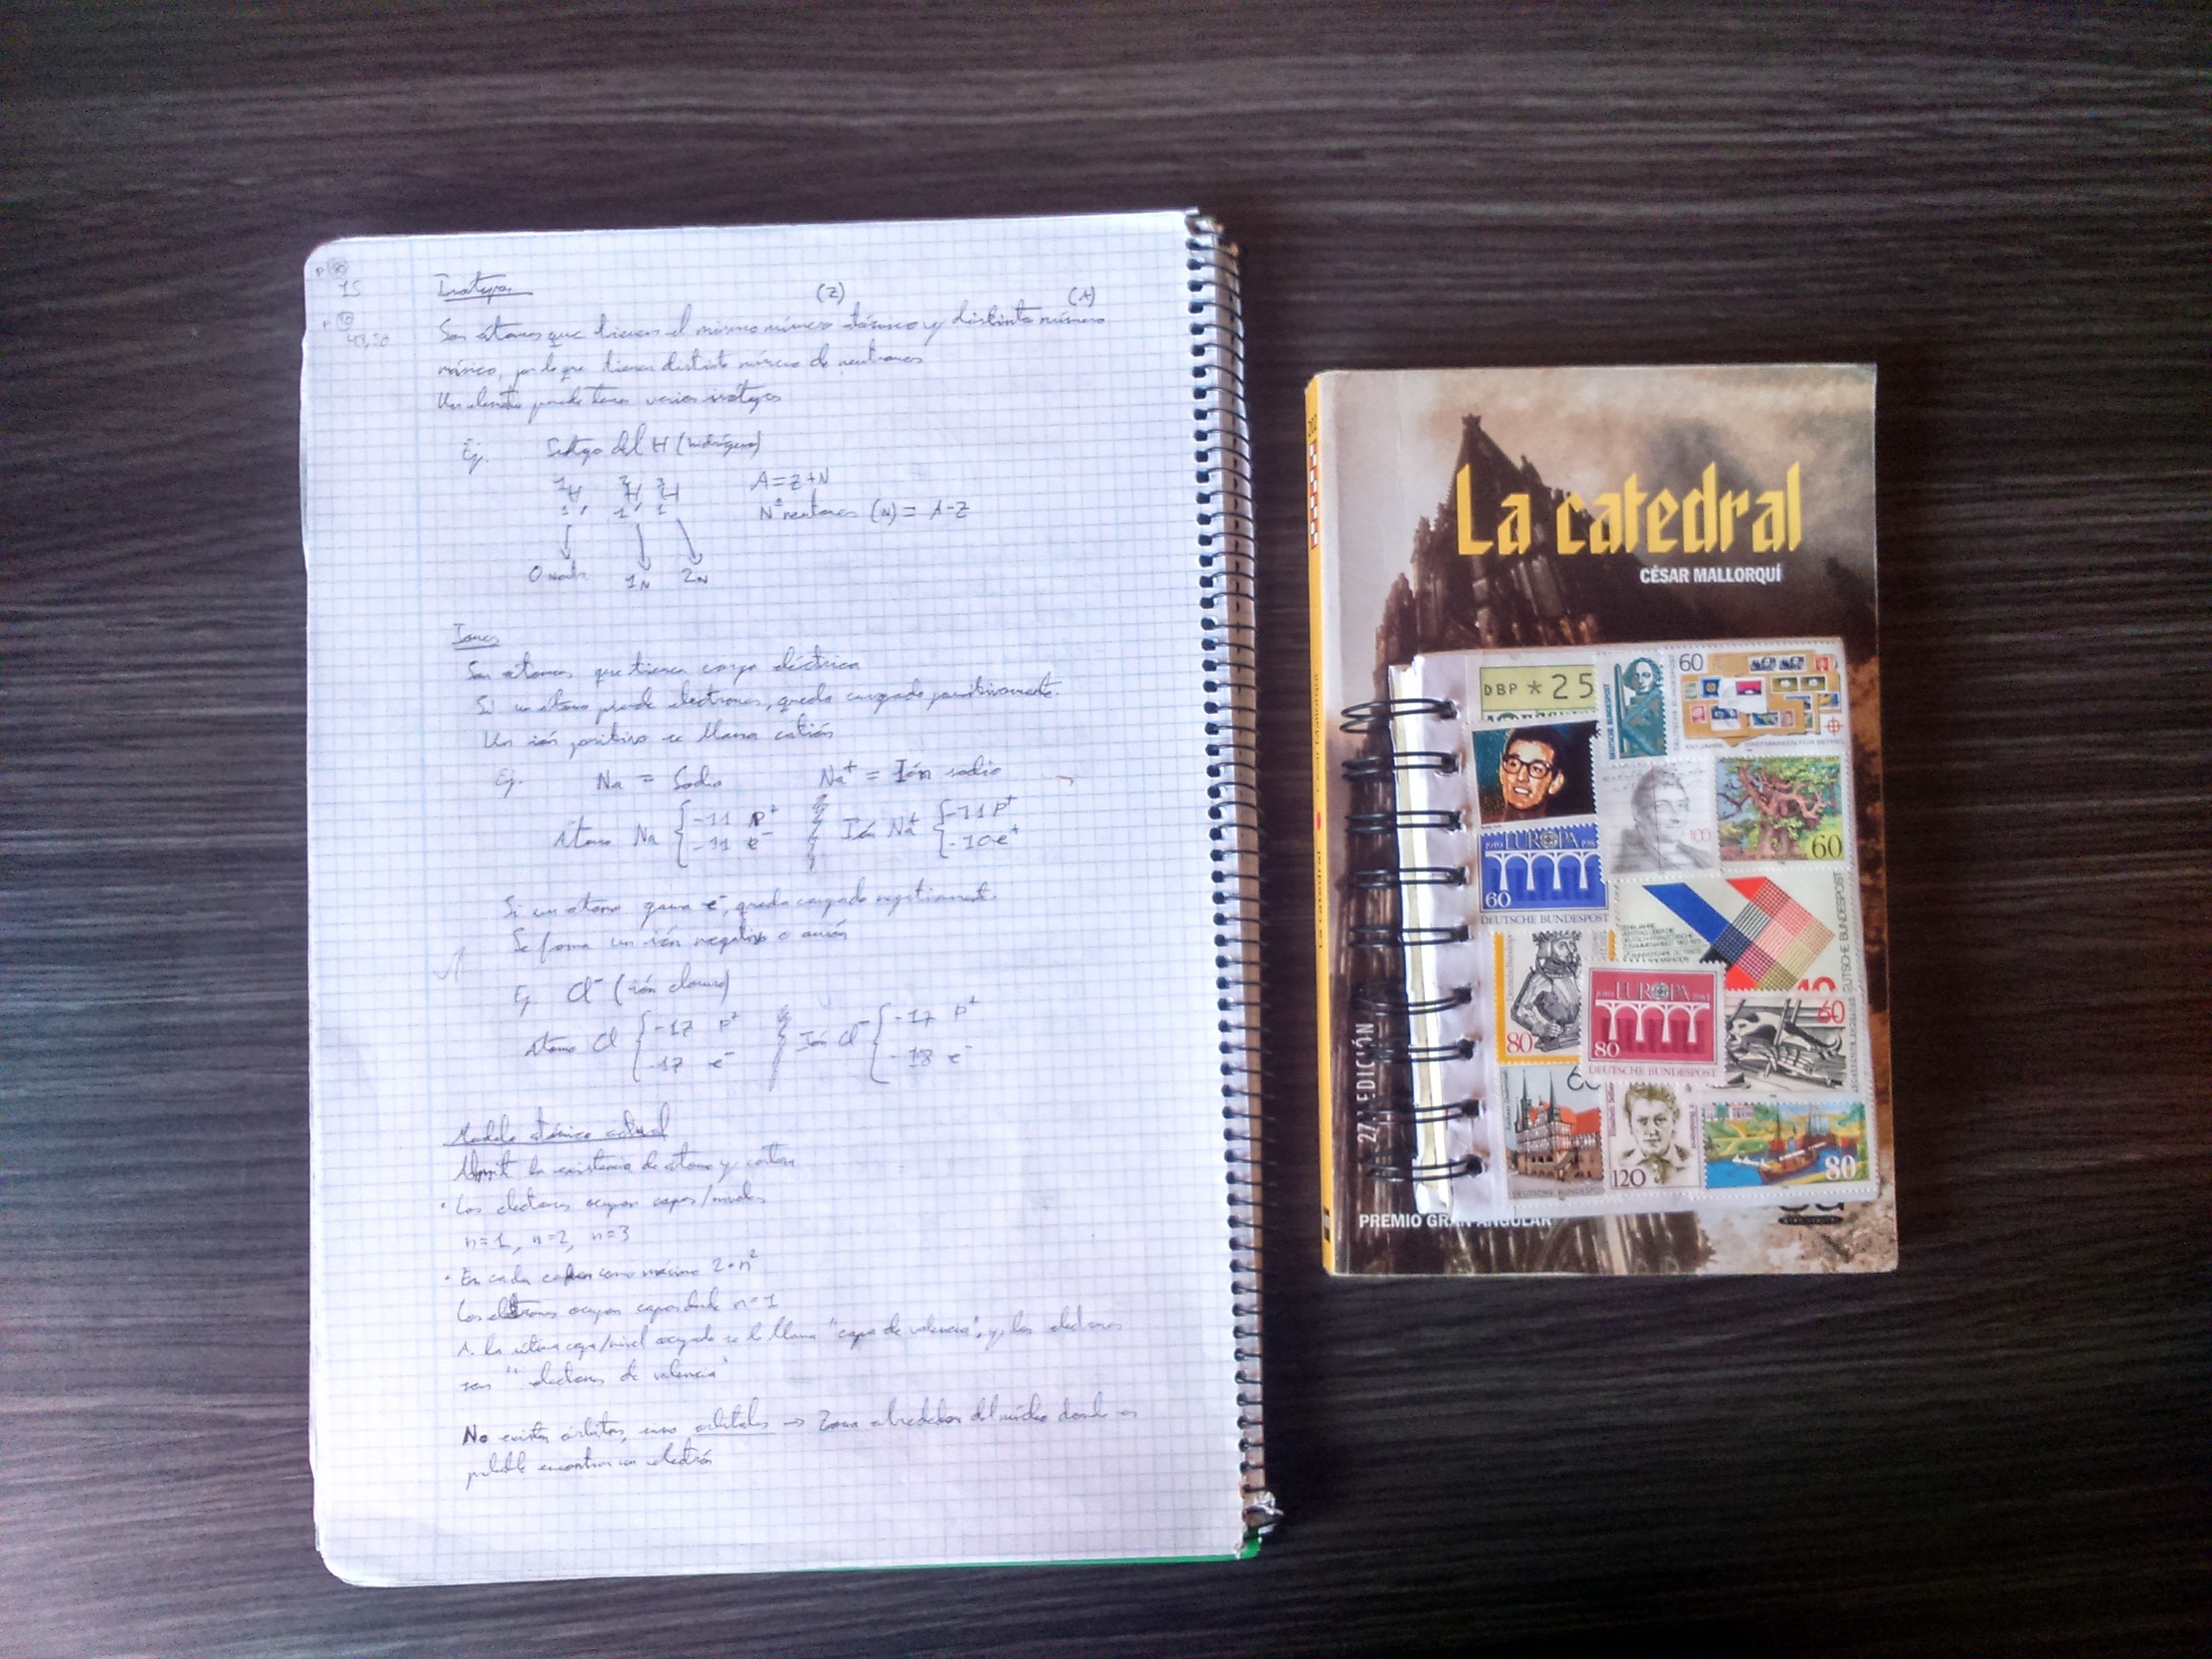 P 80
15
P 10
49,50
Isotopos
(Z) (A)
Son átomos que tienen el mismo número atómico y distinto número
másico, por lo que tienen distinto número de neutrones
Un elemento puede tener varios isotopos
Ej. Isotopo del H (hidrógeno)
1H, 2H, 3H A=Z+N
1 1 1 Nº neutrones (N) = A-Z
0 1N 2N
Iones
Son átomos que tienen carga eléctrica
Si un átomo pierde electrones, queda cargado positivamente.
Un ión positivo se llama catión
Ej. Na = Sodio Na+ = Ión sodio
Átomo Na { -11 p+ Ión Na+ { -11 p+
-11 e- -10 e+
Si un átomo gana e-, queda cargado negativamente.
Se forma un ión negativo o anión
Ej. Cl- (ión cloruro)
Átomo Cl { -17 p+ Ión Cl- { -17 p+
-17 e- -18 e-
Modelo atómico actual
la existencia de átomo y corteza
· Los electrones ocupan capas/niveles
n=1, n=2, n=3
· En cada como maximo 2·n²
Los electrones ocupan capas desde n=1
A la última capa/nivel ocupado se le llama "capa de valencia", y los electrones
son "electrones de valencia"
No existen órbitas, sino orbitales → Zona alrededor del núcleo donde es
probable encontrar un electrón
202
La catedral
César Mallorquí
La catedral
CÉSAR MALLORQUÍ
27.ª EDICIÓN
PREMIO GRAN ANGULAR
DBP *25
DEUTSCHE BUNDESPOST
60
DEUTSCHE BUNDESPOST
100
60
1959 EUROPA 198
60
DEUTSCHE BUNDESPOST
DEUTSCHE BUNDESPOST
80
1959 EUROPA 1984
80
DEUTSCHE BUNDESPOST
60
60
DEUTSCHE BUNDESPOS
120
80